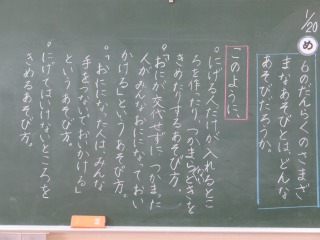 1/20
め
6のだんらくのさまざ
まなあそびとは、どんな
あそびだろうか。
このように、
にげる人だけが入れるとこ
ろを作ったり、つかまるときを
きめたりするあそび方。
「おにが交代せずに、つかまった
人がみんなおにになっておい
かける」というあそび方。
「おにになった人は、みんな
手をつないでおいかける」
というあそび方。
にげてはいけないところを
きめるあそび方。